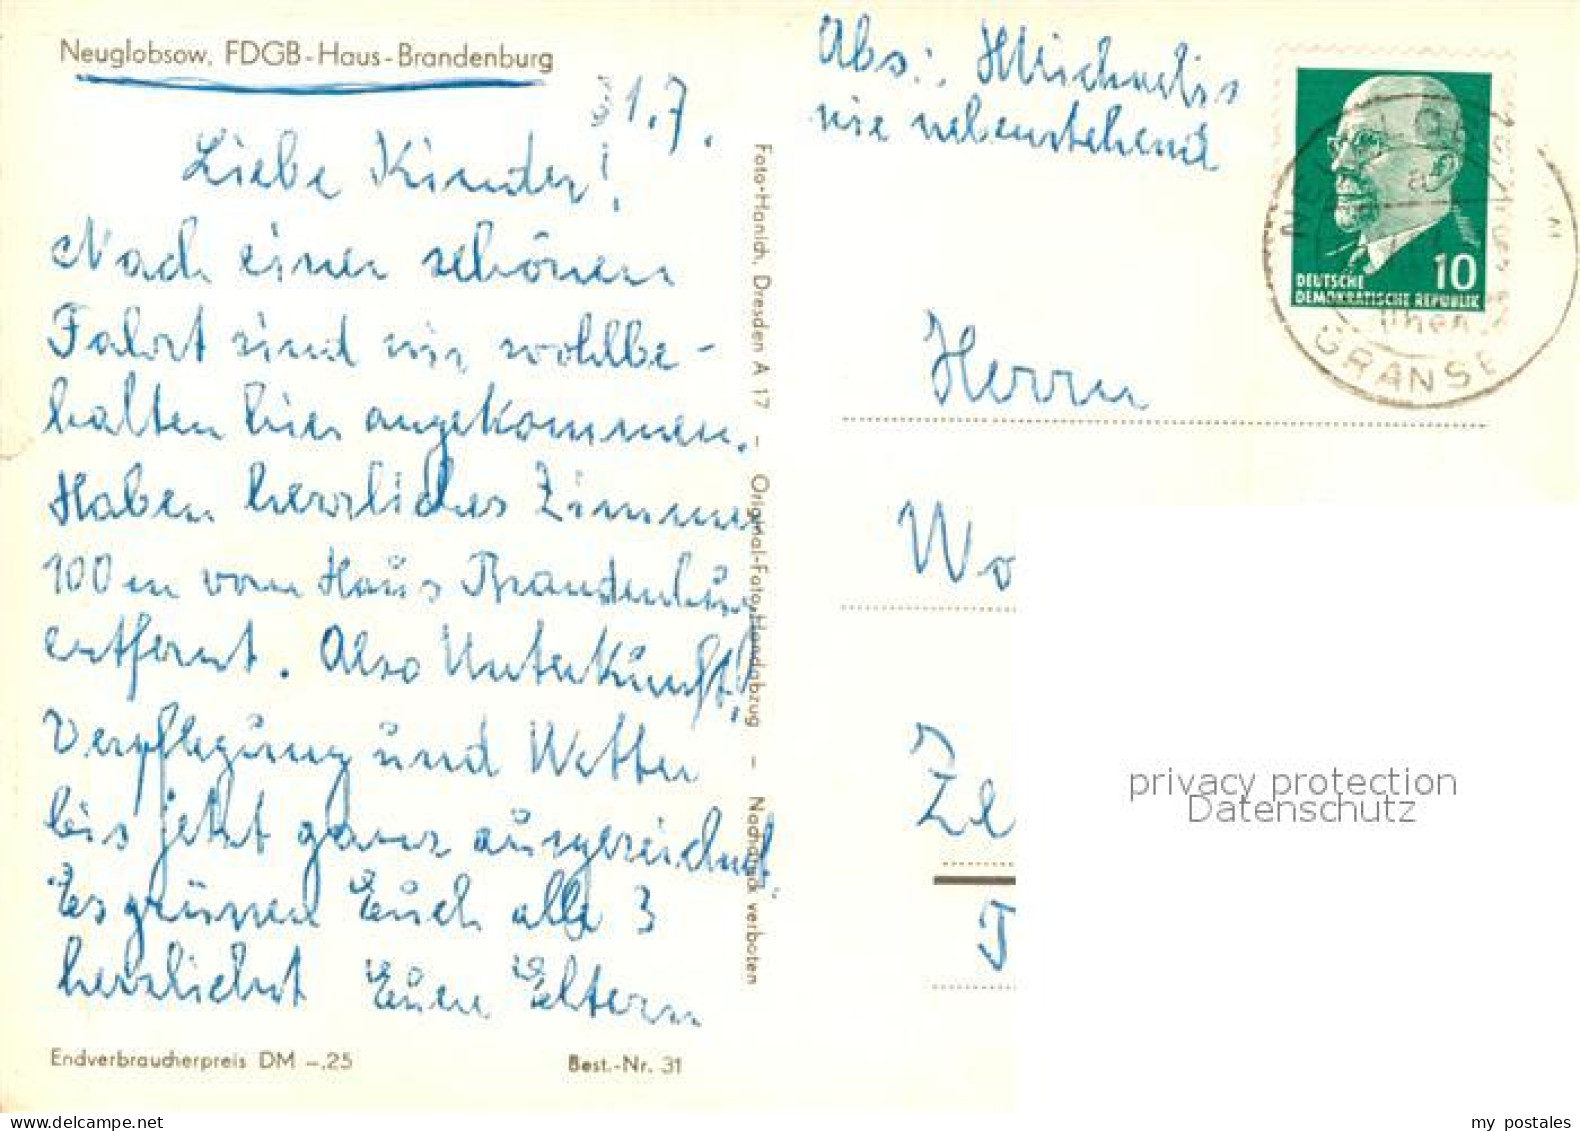 Neuglobsow, FDGB-Haus-Brandenburg
1.7.
Liebe Kinder!
Nach einer schönen
Fahrt sind wir wohlbe-
halten hier angekommen.
Haben herrliches Zimmer
100 m vom Haus Brandenburg
entfernt. Also Unterkunft!
Verpflegung und Wetter
bis jetzt ganz ausgezeichnet.
Es grüssen Euch alle 3
herzlichst Eure Eltern
Endverbraucherpreis DM -.25
Best.-Nr. 31
Foto-Hanich, Dresden A 17 - Original-Foto-Handabzug - Nachdruck verboten
Abs.: H. Michaelis
wie nebenstehend
10
DEUTSCHE
DEMOKRATISCHE REPUBLIK
GRANSE
Herrn
Wo
Ze
T
privacy protection
Datenschutz
my postales